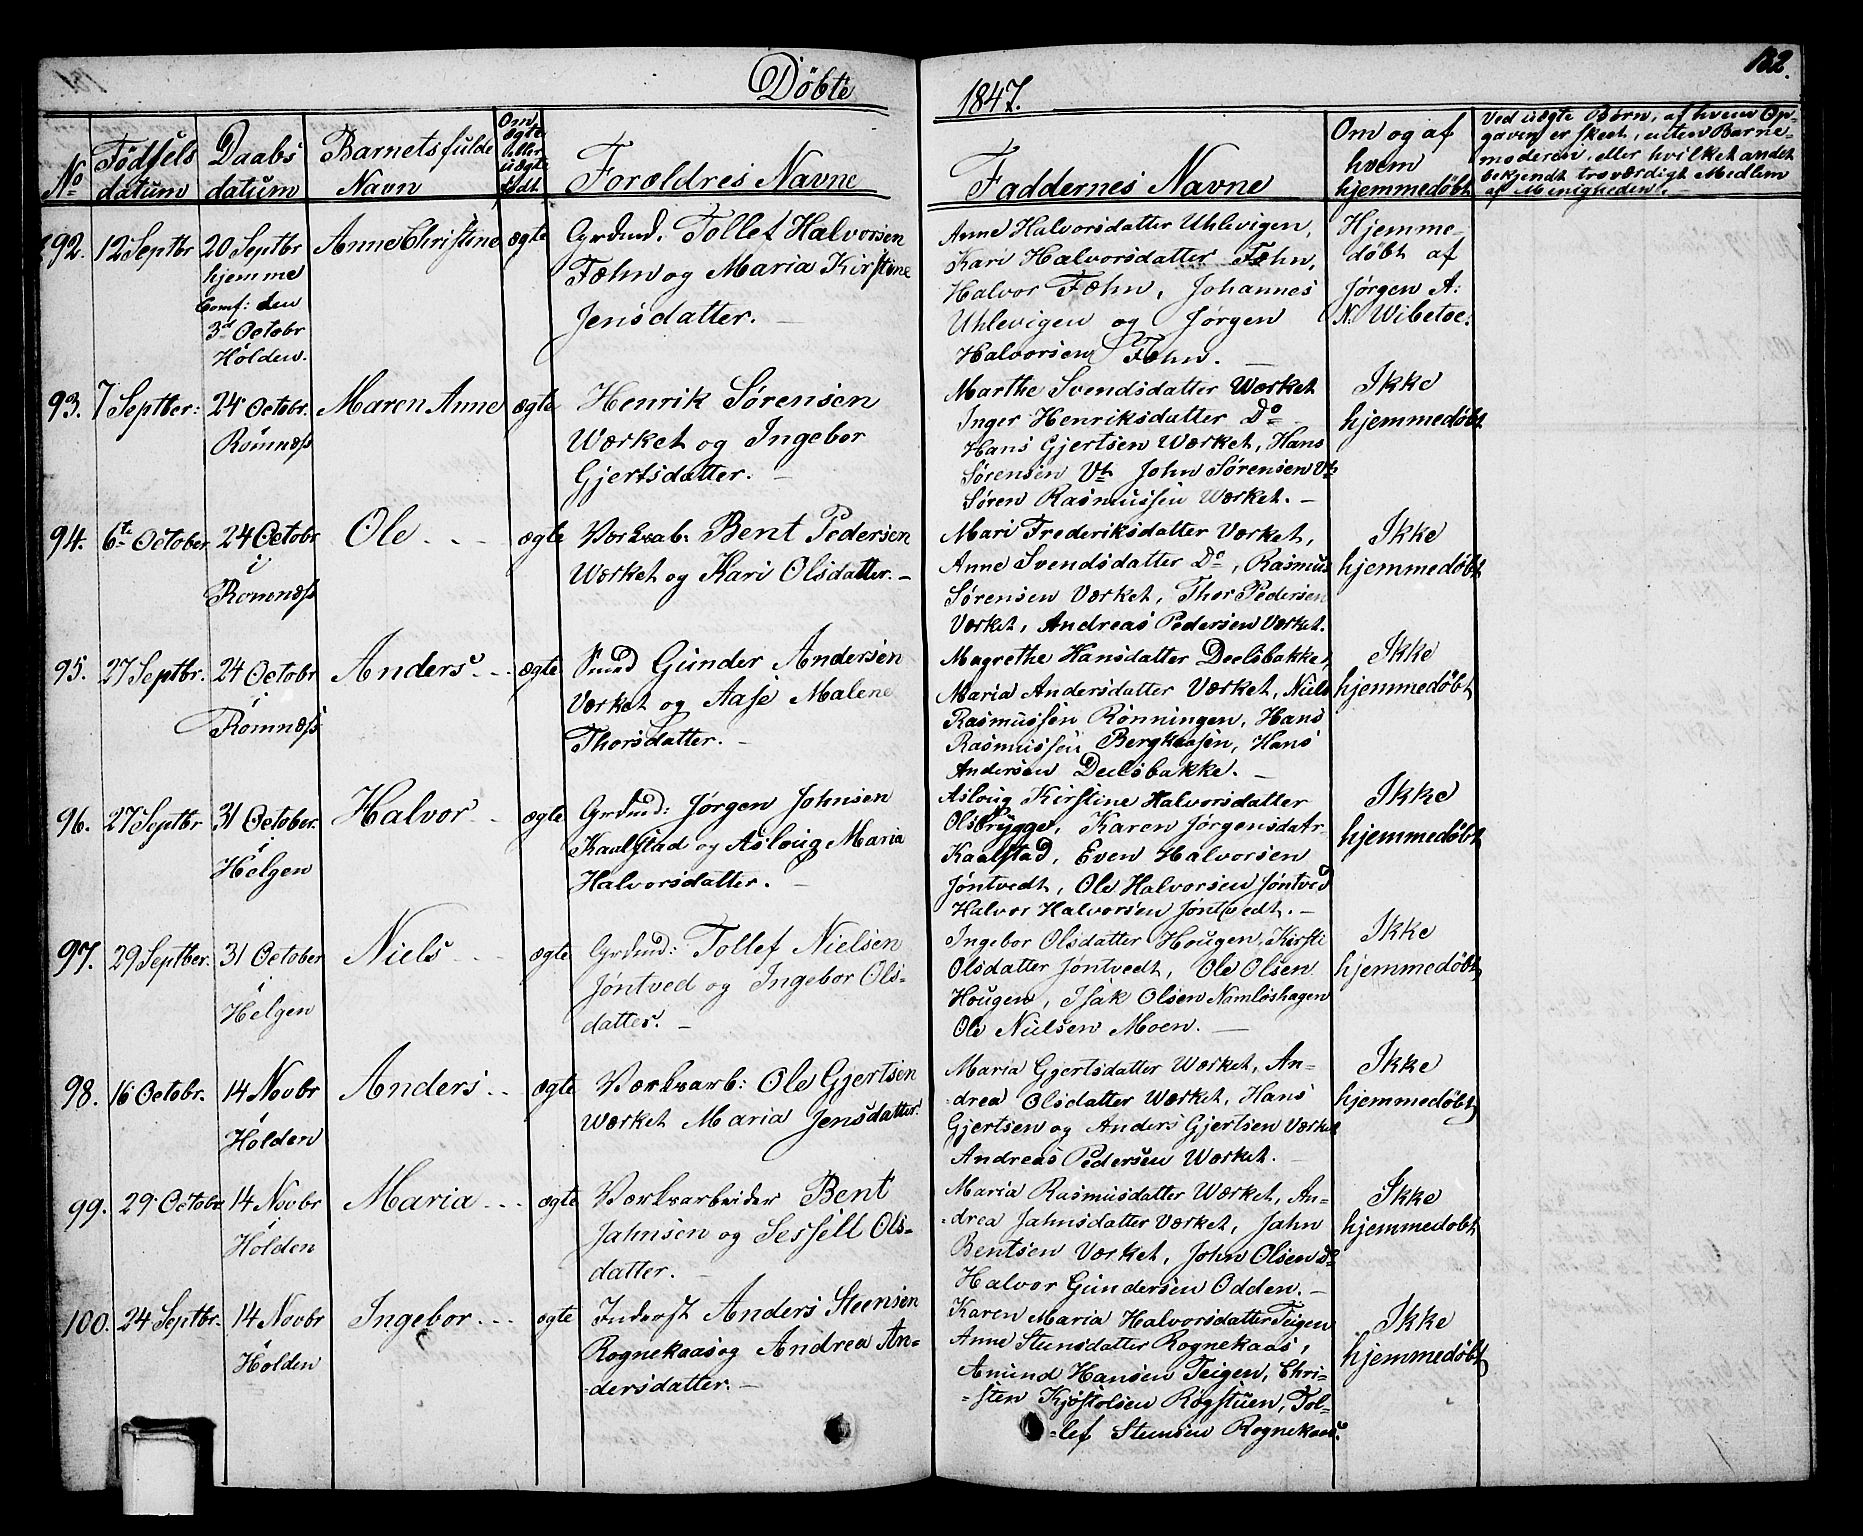 Döbte
1847.
132.
No
Födsels
datum
Daabs
datum
Barnets fulde
Navn
Om
ægte
eller
uægte
födt.
Forældres Navne
Faddernes Navne
Om og af
hvem
hjemmedöbt
Ved uægte Börn, af hvem Op-
gaven er skeet, uten Barne-
moderen, eller hvilket andet
bekjendt troværdigt Medlem
af Menigheden.
92.
12 Septbr
20 Septbr
hjemme
Comf: den
3d Octobr
Holden.
Anne Christine
ægte
Grdmd. Tollef Halvorsen
Fæhn og Maria Kirstine
Jensdatter. —
Anne Halvorsdatter Uhlevigen,
Kari Halvorsdatter Fæhn,
Halvor Fæhn, Johannes
Uhlevigen og Jorgen
Halvorsen Fæhn. —
Hjemme-
döbt af
Jørgen A:
N. Wibetoe.
93.
7 Septber:
24 Octobr.
Romnæss
Maren Anne
ægte
Henrik Sørensen
Værket og Ingebor
Gjertsdatter. —
Marthe Svendsdatter Værket
Inger Henriksdatter Do
Hans Gjertsen Værket, Hans
Sørensen Vt John Sørensen Vt
Søren Rasmussen Værket. —
Ikke
hjemmedöbt
94.
6t October
24 Octobr
i
Romnæss
Ole
ægte
Værksab: Bent Pedersen
Værket og Kari Olsdatter. —
Mari Frederiksdatter Værket,
Anne Svendsdatter Do, Rasmus
Sørensen Værket, Thor Pedersen
Værket, Andreas Pedersen Værket.
Ikke
hjemmedöbt
95.
27 Septbr.
24 Octobr
i
Romnæss
Anders
ægte
Smed Gunder Andersen
Værket og Aase Malene
Thorsdatter. —
Magrethe Hansdatter Deelsbakke,
Maria Andersdatter Værket, Niels
Rasmussen Rønningen, Hans
Rasmussen Bergkaasen, Hans
Andersen Deelsbakke. —
Ikke
hjemmedöbt
96.
27 Septbr
31 October.
i
Helgen
Halvor
ægte
Grdmd: Jørgen Johnsen
Kaalstad og Asloug Maria
Halvorsdatter. —
Asloug Kirstine Halvorsdatter
Olsbrygge, Karen Jørgensdatr.
Kaalstad, Even Halvorsen
Jøntvedt, Ole Halvorsen Jøntved
Halvor Halvorsen Jøntvedt. —
Ikke
hjemmedöbt
97.
29 Septber.
31 October
i
Helgen
Niels
ægte
Grdmd: Tollef Nielsen
Jöntved og Ingebor Ols-
datter. —
Ingebor Olsdatter Hougen, Kirsti
Olsdatter Jøntvedt, Ole Olsen
Hougen, Isak Olsen Namløshagen
Ole Nielsen Moen. —
Ikke
hjemmedöbt
98.
16 Octobr.
14 Novbr
i
Holden
Anders
ægte
Værksarb: Ole Gjertsen
Værket Maria Jensdatter
Maria Gjertsdatter Værket, An-
drea Olsdatter Værket, Hans
Gjertsen og Anders Gjertsen Værket
Andreas Pedersen Værket. —
Ikke
hjemmedöbt
99.
29 Octobr
14 Novbr
i
Holden
Maria
ægte
Værksarbeider Bent
Jahnsen og Sessell Ols-
datter. —
Maria Rasmusdatter Værket, An-
drea Jahnsdatter Værket, Jahn
Bentsen Værket, John Olsen do
Halvor Gundersen Odden. —
Ikke
hjemmedöbt
100.
24 Septbr.
14 Novbr
i
Holden
Ingebor
ægte
Inderst Anders Steensen
Rognekaas og Andrea An-
dersdatter. —
Karen Maria Halvorsdatter Teigen
Anne Steensdatter Rognekaas,
Amund Hansen Teigen, Chri-
sten Kjöstolsen Røgstuen, Tol-
lef Steensen Rognekaas.
Ikke
hjemmedöbt